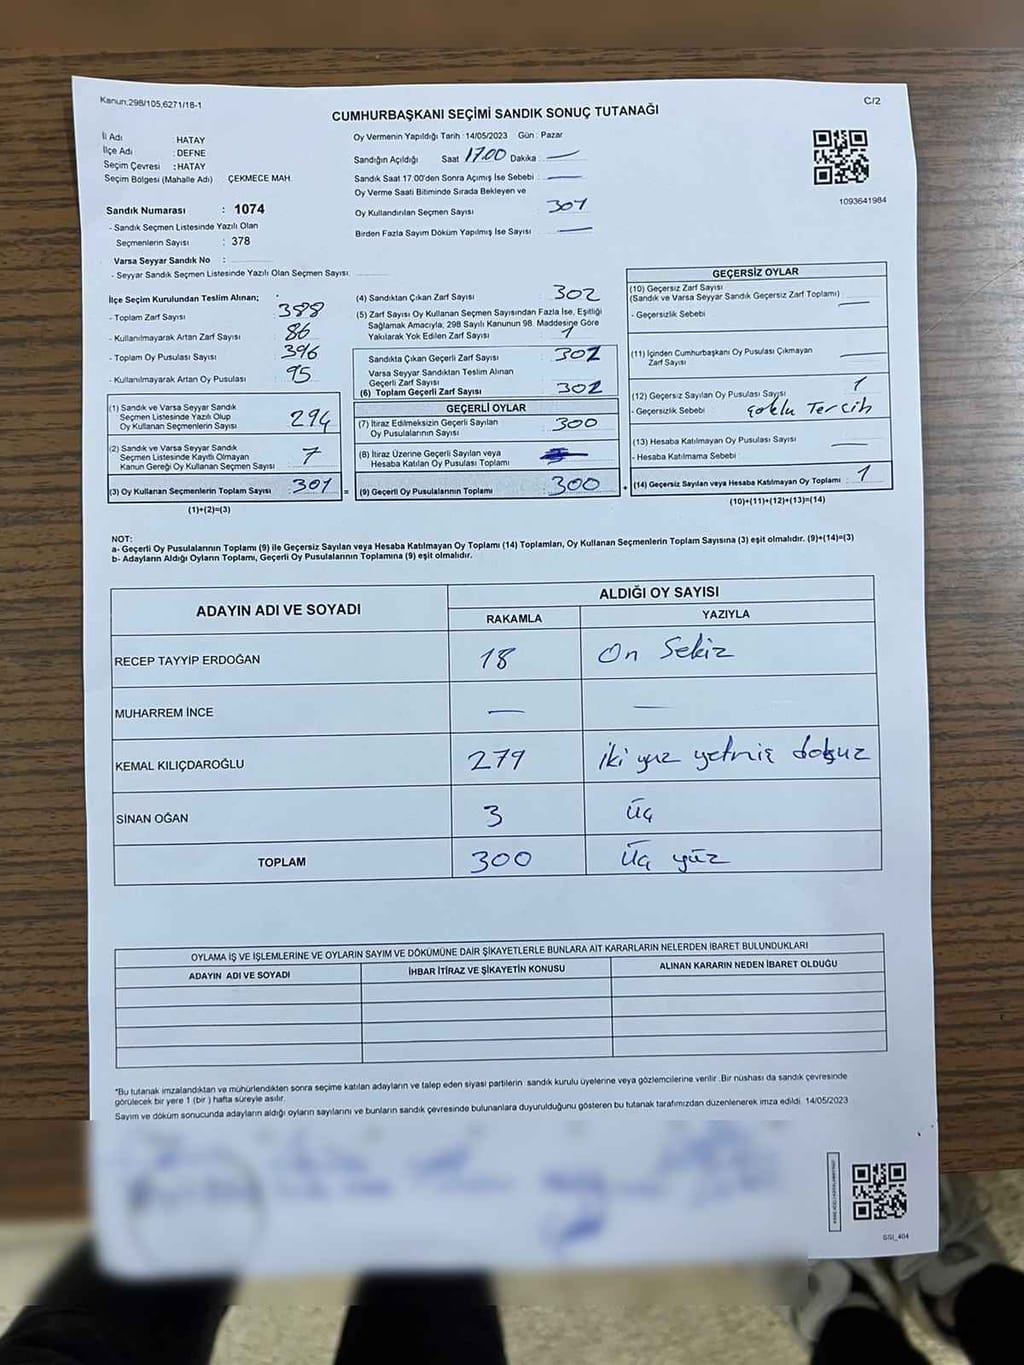 Kanun;298/105,6271/18-1
C/2
CUMHURBAŞKANI SEÇİMİ SANDIK SONUÇ TUTANAĞI
İl Adı HATAY
İlçe Adı : DEFNE
Seçim Çevresi : HATAY
Seçim Bölgesi (Mahalle Adı) ÇEKMECE MAH.
Sandık Numarası : 1074
- Sandık Seçmen Listesinde Yazılı Olan
Seçmenlerin Sayısı : 378
Varsa Seyyar Sandık No :
- Seyyar Sandık Seçmen Listesinde Yazılı Olan Seçmen Sayısı:
Oy Vermenin Yapıldığı Tarih :14/05/2023 Gün : Pazar
Sandığın Açıldığı Saat 17.00 Dakika : —
Sandık Saat 17.00'den Sonra Açımış İse Sebebi : —
Oy Verme Saati Bitiminde Sırada Bekleyen ve
Oy Kullandırılan Seçmen Sayısı 301
Birden Fazla Sayım Döküm Yapılmış İse Sayısı —
1093641984
İlçe Seçim Kurulundan Teslim Alınan;
- Toplam Zarf Sayısı : 388
- Kullanılmayarak Artan Zarf Sayısı : 86
- Toplam Oy Pusulası Sayısı : 396
- Kullanılmayarak Artan Oy Pusulası : 95
(1) Sandık ve Varsa Seyyar Sandık
Seçmen Listesinde Yazılı Olup
Oy Kullanan Seçmenlerin Sayısı : 294
(2) Sandık ve Varsa Seyyar Sandık
Seçmen Listesinde Kayıtlı Olmayan
Kanun Gereği Oy Kullanan Seçmen Sayısı : 7
(3) Oy Kullanan Seçmenlerin Toplam Sayısı : 301 =
(1)+(2)=(3)
(4) Sandıktan Çıkan Zarf Sayısı : 302
(5) Zarf Sayısı Oy Kullanan Seçmen Sayısından Fazla İse, Eşitliği
Sağlamak Amacıyla, 298 Sayılı Kanunun 98. Maddesine Göre
Yakılarak Yok Edilen Zarf Sayısı : 1
Sandıkta Çıkan Geçerli Zarf Sayısı :
Varsa Seyyar Sandıktan Teslim Alınan
Geçerli Zarf Sayısı
(6) Toplam Geçerli Zarf Sayısı :
GEÇERLİ OYLAR
(7) İtiraz Edilmeksizin Geçerli Sayılan
Oy Pusulalarının Sayısı : 300
(8) İtiraz Üzerine Geçerli Sayılan veya
Hesaba Katılan Oy Pusulası Toplamı :
(9) Geçerli Oy Pusulalarının Toplamı : 300
GEÇERSİZ OYLAR
(10) Geçersiz Zarf Sayısı
(Sandık ve Varsa Seyyar Sandık Geçersiz Zarf Toplamı) : —
- Geçersizlik Sebebi :
(11) İçinden Cumhurbaşkanı Oy Pusulası Çıkmayan
Zarf Sayısı : —
(12) Geçersiz Sayılan Oy Pusulası Sayısı : 1
- Geçersizlik Sebebi : Çoklu Tercih
(13) Hesaba Katılmayan Oy Pusulası Sayısı : —
- Hesaba Katılmama Sebebi :
(14) Geçersiz Sayılan veya Hesaba Katılmayan Oy Toplamı : 1
(10)+(11)+(12)+(13)=(14)
NOT:
a- Geçerli Oy Pusulalarının Toplamı (9) ile Geçersiz Sayılan veya Hesaba Katılmayan Oy Toplamı (14) Toplamları, Oy Kullanan Seçmenlerin Toplam Sayısına (3) eşit olmalıdır. (9)+(14)=(3)
b- Adayların Aldığı Oyların Toplamı, Geçerli Oy Pusulalarının Toplamına (9) eşit olmalıdır.
ADAYIN ADI VE SOYADI ALDIĞI OY SAYISI
RAKAMLA YAZIYLA
RECEP TAYYİP ERDOĞAN 18 On Sekiz
MUHARREM İNCE — —
KEMAL KILIÇDAROĞLU 279 İki yüz yetmiş dokuz
SİNAN OĞAN 3 Üç
TOPLAM 300 Üç yüz
OYLAMA İŞ VE İŞLEMLERİNE VE OYLARIN SAYIM VE DÖKÜMÜNE DAİR ŞİKAYETLERLE BUNLARA AİT KARARLARIN NELERDEN İBARET BULUNDUKLARI
ADAYIN ADI VE SOYADI İHBAR İTİRAZ VE ŞİKAYETİN KONUSU ALINAN KARARIN NEDEN İBARET OLDUĞU
*Bu tutanak imzalandıktan ve mühürlendikten sonra seçime katılan adayların ve talep eden siyasi partilerin sandık kurulu üyelerine veya gözlemcilerine verilir .Bir nüshası da sandık çevresinde
görülecek bir yere 1 (bir ) hafta süreyle asılır.
Sayım ve döküm sonucunda adayların aldığı oyların sayılarını ve bunların sandık çevresinde bulunanlara duyurulduğunu gösteren bu tutanak tarafımızdan düzenlenerek imza edildi. 14/05/2023
SSI_404